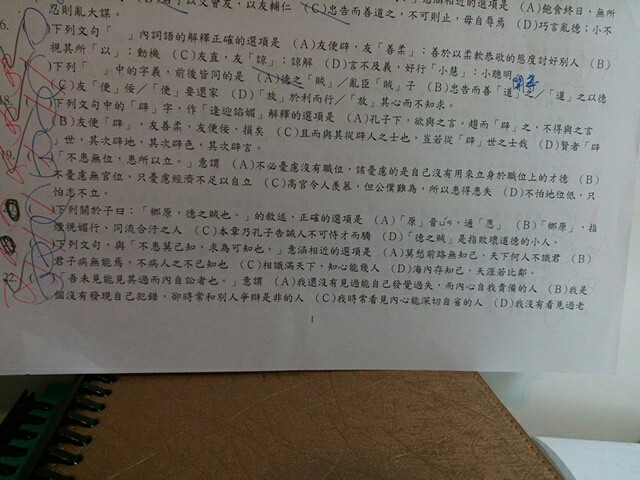 以文會友，以友輔仁 (C)忠告而善道之，不可則止，毋自辱焉 (D)巧言亂德；小不
忍則亂大謀。
下列文句「　」內詞語的解釋正確的選項是 (A)友便辟，友「善柔」：善於以柔軟恭敬的態度討好別人 (B)
視其所「以」：動機 (C)友直，友「諒」：諒解 (D)言不及義，好行「小慧」：小聰明
下列「　」中的字義，前後皆同的是 (A)德之「賊」／亂臣「賊」子 (B)忠告而善「道」之／「道」之以德
(C)友「便」佞／「便」要還家 (D)「放」於利而行／「放」其心而不知求。
18. 下列文句中的「辟」字，作「逢迎諂媚」解釋的選項是 (A)孔子下，欲與之言。趨而「辟」之，不得與之言
(B)友便「辟」，友善柔，友便佞，損矣 (C)且而與其從辟人之士也，豈若從「辟」世之士哉 (D)賢者「辟
」世，其次辟地，其次辟色，其次辟言。
19. 「不患無位，患所以立。」意謂 (A)不必憂慮沒有職位，該憂慮的是自己沒有用來立身於職位上的才德 (B)
不憂慮無官位，只憂慮經濟不足以自立 (C)高官令人羨慕，但公僕難為，所以患得患失 (D)不怕地位低，只
怕志不立。
下列關於子曰：「鄉原，德之賊也。」的敘述，正確的選項是 (A)「原」音ㄩㄢˋ，通「愿」 (B)「鄉原」，指
煙視媚行、同流合汙之人 (C)本章乃孔子告誡人不可恃才而驕 (D)「德之賊」是指敗壞道德的小人。
下列文句，與「不患莫己知，求為可知也。」意涵相近的選項是 (A)莫愁前路無知己，天下何人不識君 (B)
君子病無能焉，不病人之不己知也 (C)相識滿天下，知心能幾人 (D)海內存知己，天涯若比鄰。
22. 「吾未見能見其過而內自訟者也。」意謂 (A)我還沒有見過能自己發覺過失，而內心自我責備的人 (B)我是
個沒有發現自己犯錯，卻時常和別人爭辯是非的人 (C)我時常看見內心能深切自省的人 (D)我沒有看見過老
1